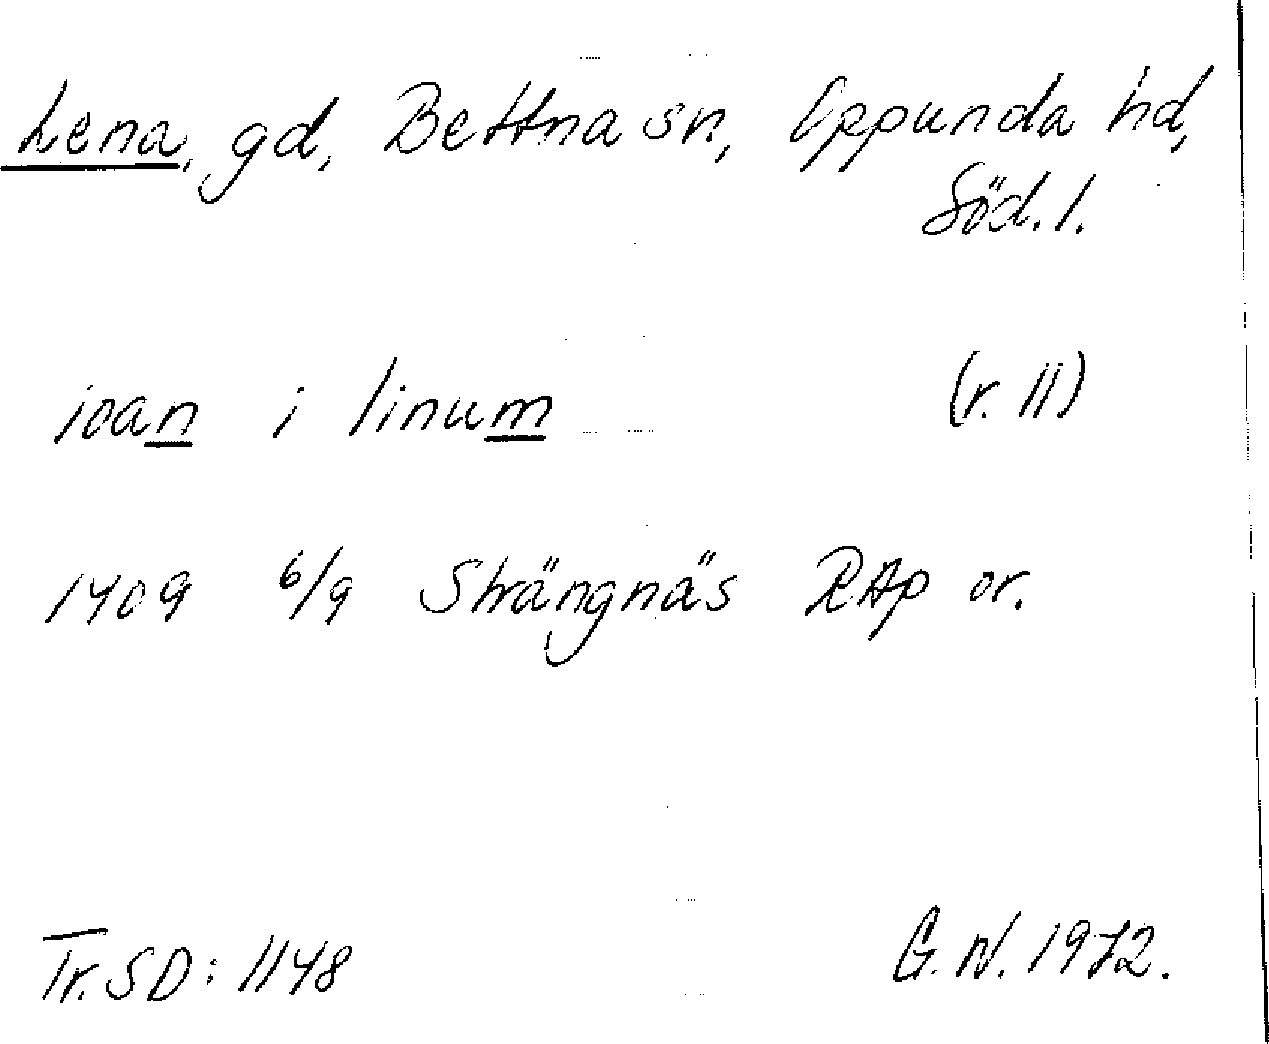 Lena, gd, Bettna sn, Oppunda hd,
Söd.l.
ioan i linum (r. 11)
1409 6/9 Strängnäs RAp or.
Tr. SD: 1148 G. N. 1972.